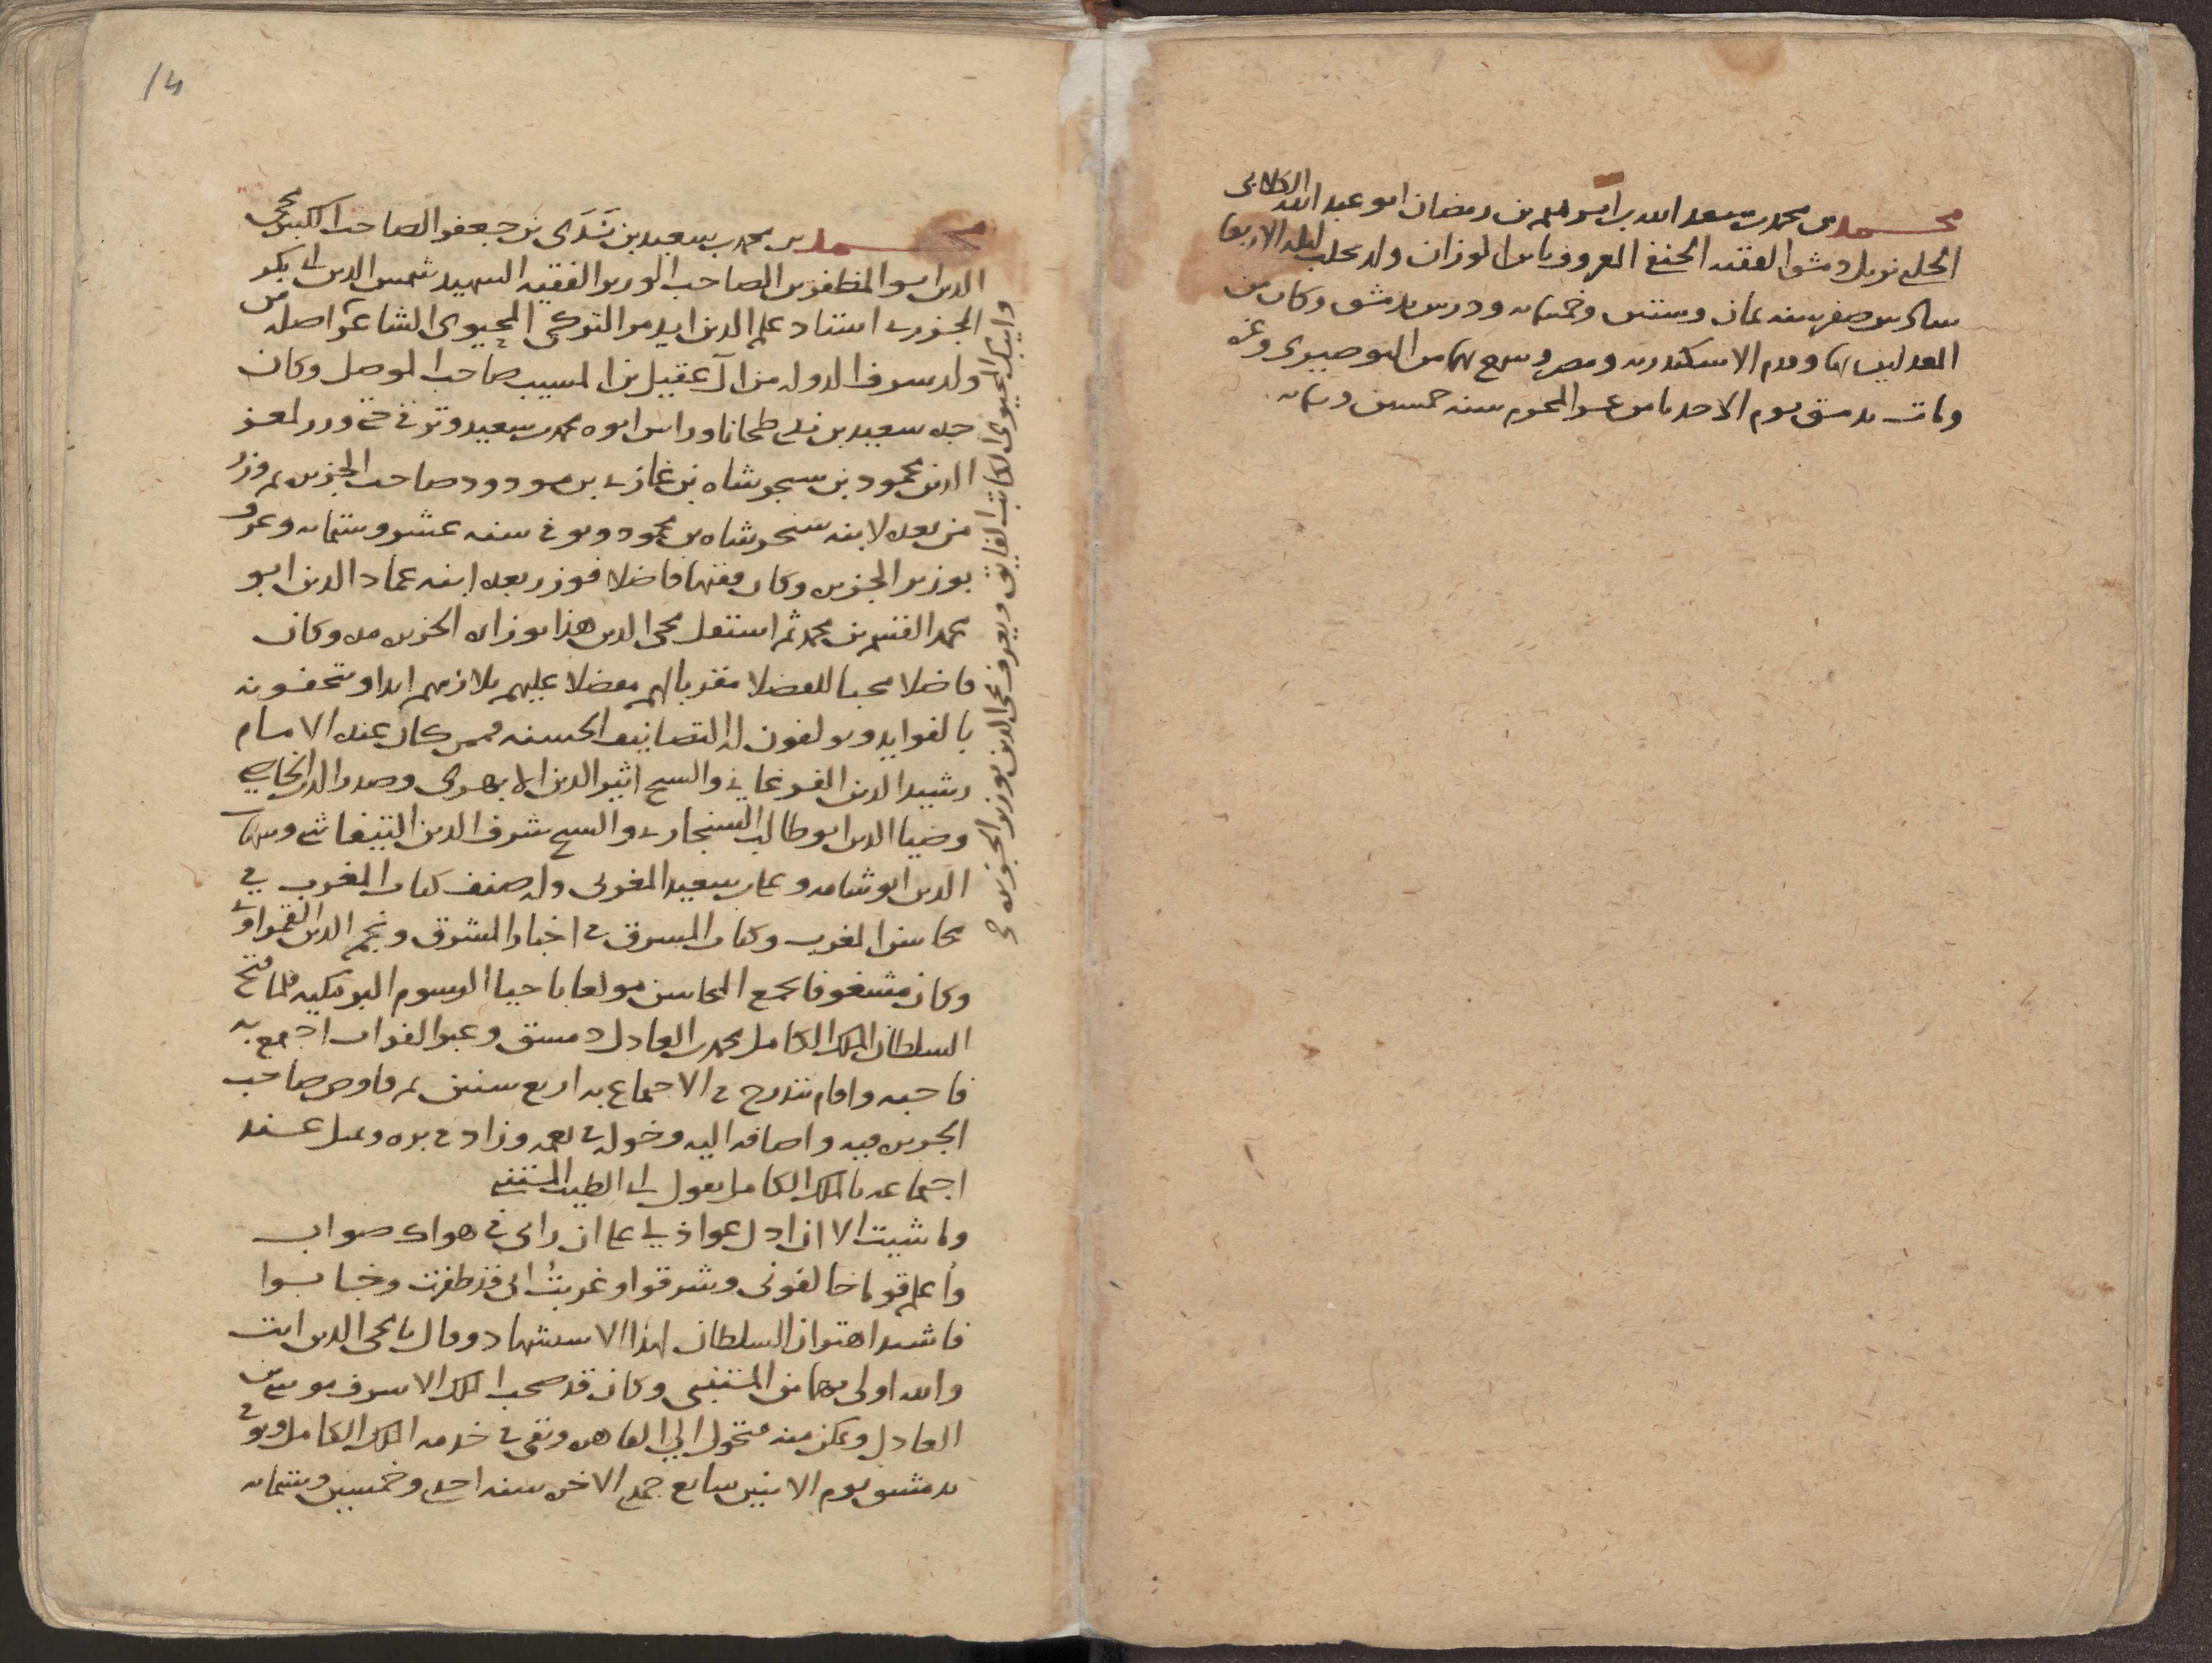 محمد بن محمد بن سعد الله بن ابراهيم بن رمضان ابو عبد الله الكلابى
الحلبى نزيل دمشق الفقيه الحنفى المعروف بابن الوزان ولد بحلب ليلة الاربعا
سادس صفر سنه ثمان وستين وخمسمايه ودرس بدمشق وكان من
المعدلين بها وقدم الاسكندريه ومصر وسمع بها من البوصيرى وغيره
ومات بدمشق يوم الاحد ثامن عشر المحرم سنه خمسين وستمايه
14
محمد بن محمد بن سعيد بن نَدَى بن جعفر الصاحب الكبير محيى
الدين ابو المظفر بن الصاحب الوزير الفقيه الشهيد شمس الدين ابى بكر
الجزرى استاد علم الدين ايدمر التركى المحيوى الشاعر اصله من
ولد شرف الدوله من آل عقيل بن المسيب صاحب الموصل وكان
جده سعيد بن ندى طحانا وراس ابوه محمد بن سعيد وترقى حتى وزر لمعز
الدين محمود بن سنجر شاه بن غازى بن مودود صاحب الجزيره ثم وزر
من بعده لابنه سنجر شاه بن محمود وتوفى سنه عشر وستمايه وعرف
بوزير الجزيره وكان فقيها فاضلا فوزر بعده ابنه عماد الدين ابو
محمد القسم بن محمد ثم استقل محيى الدين هذا بوزارة الجزيره مده وكان
فاضلا محبا للفضلا مقربا لهم مفضلا عليهم يلازمهم ابدا ويتحفونه
بالفوايد ويولفون له التصانيف الحسنه فممن كان عنده الامام
رشيد الدين الفرغانى والشيخ اثير الدين الابهرى وصدر الدين الخاصى
وضيا الدين ابو طالب السنجارى والشيخ شرف الدين التيفاشى وشهاب
الدين ابو شامه وعلى بن سعيد المغربى وله صنف كتاب المغرب فى
محاسن المغرب وكتاب المشرق فى اخبار المشرق ونجم الدين القمراوى
وكان مشغوفا بجمع المحاسن مولعا باحيا الرسوم البرمكيه فلما فتح
السلطان الملك الكامل محمد بن العادل دمشق وعبر الفرات اجتمع به
فاحبه واقام يتدرج فى الاجتماع به اربع سنين ثم فاوض صاحب
الجزيره فيه واضافه اليه وخوله فى نعمه وزاد فى بره وتمثل عند
اجتماعه بالملك الكامل بقول ابى الطيب المتنبى
وما شيت الا ان ادل عواذلى على ان رائى فى هواك صواب
وأُعلم قوما خالفونى وشرقوا وغربتُ انى قد ظفرت وخابوا
فاشتد اهتزاز السلطان لهذا الاستشهاد وقال يا محيى الدين انت
والله اولى بهما من المتنبى وكان قد صحب الملك الاشرف موسى بن
العادل وتمكن منه فتحول الى القاهره وبقى فى خدمه الملك الكامل وتوفى
بدمشق يوم الاثنين سابع جمادى الاخره سنه احدى وخمسين وستمايه
وايبك المحيوى الكاتب الفايق ويعرف محيى الدين بوزير الجزيره